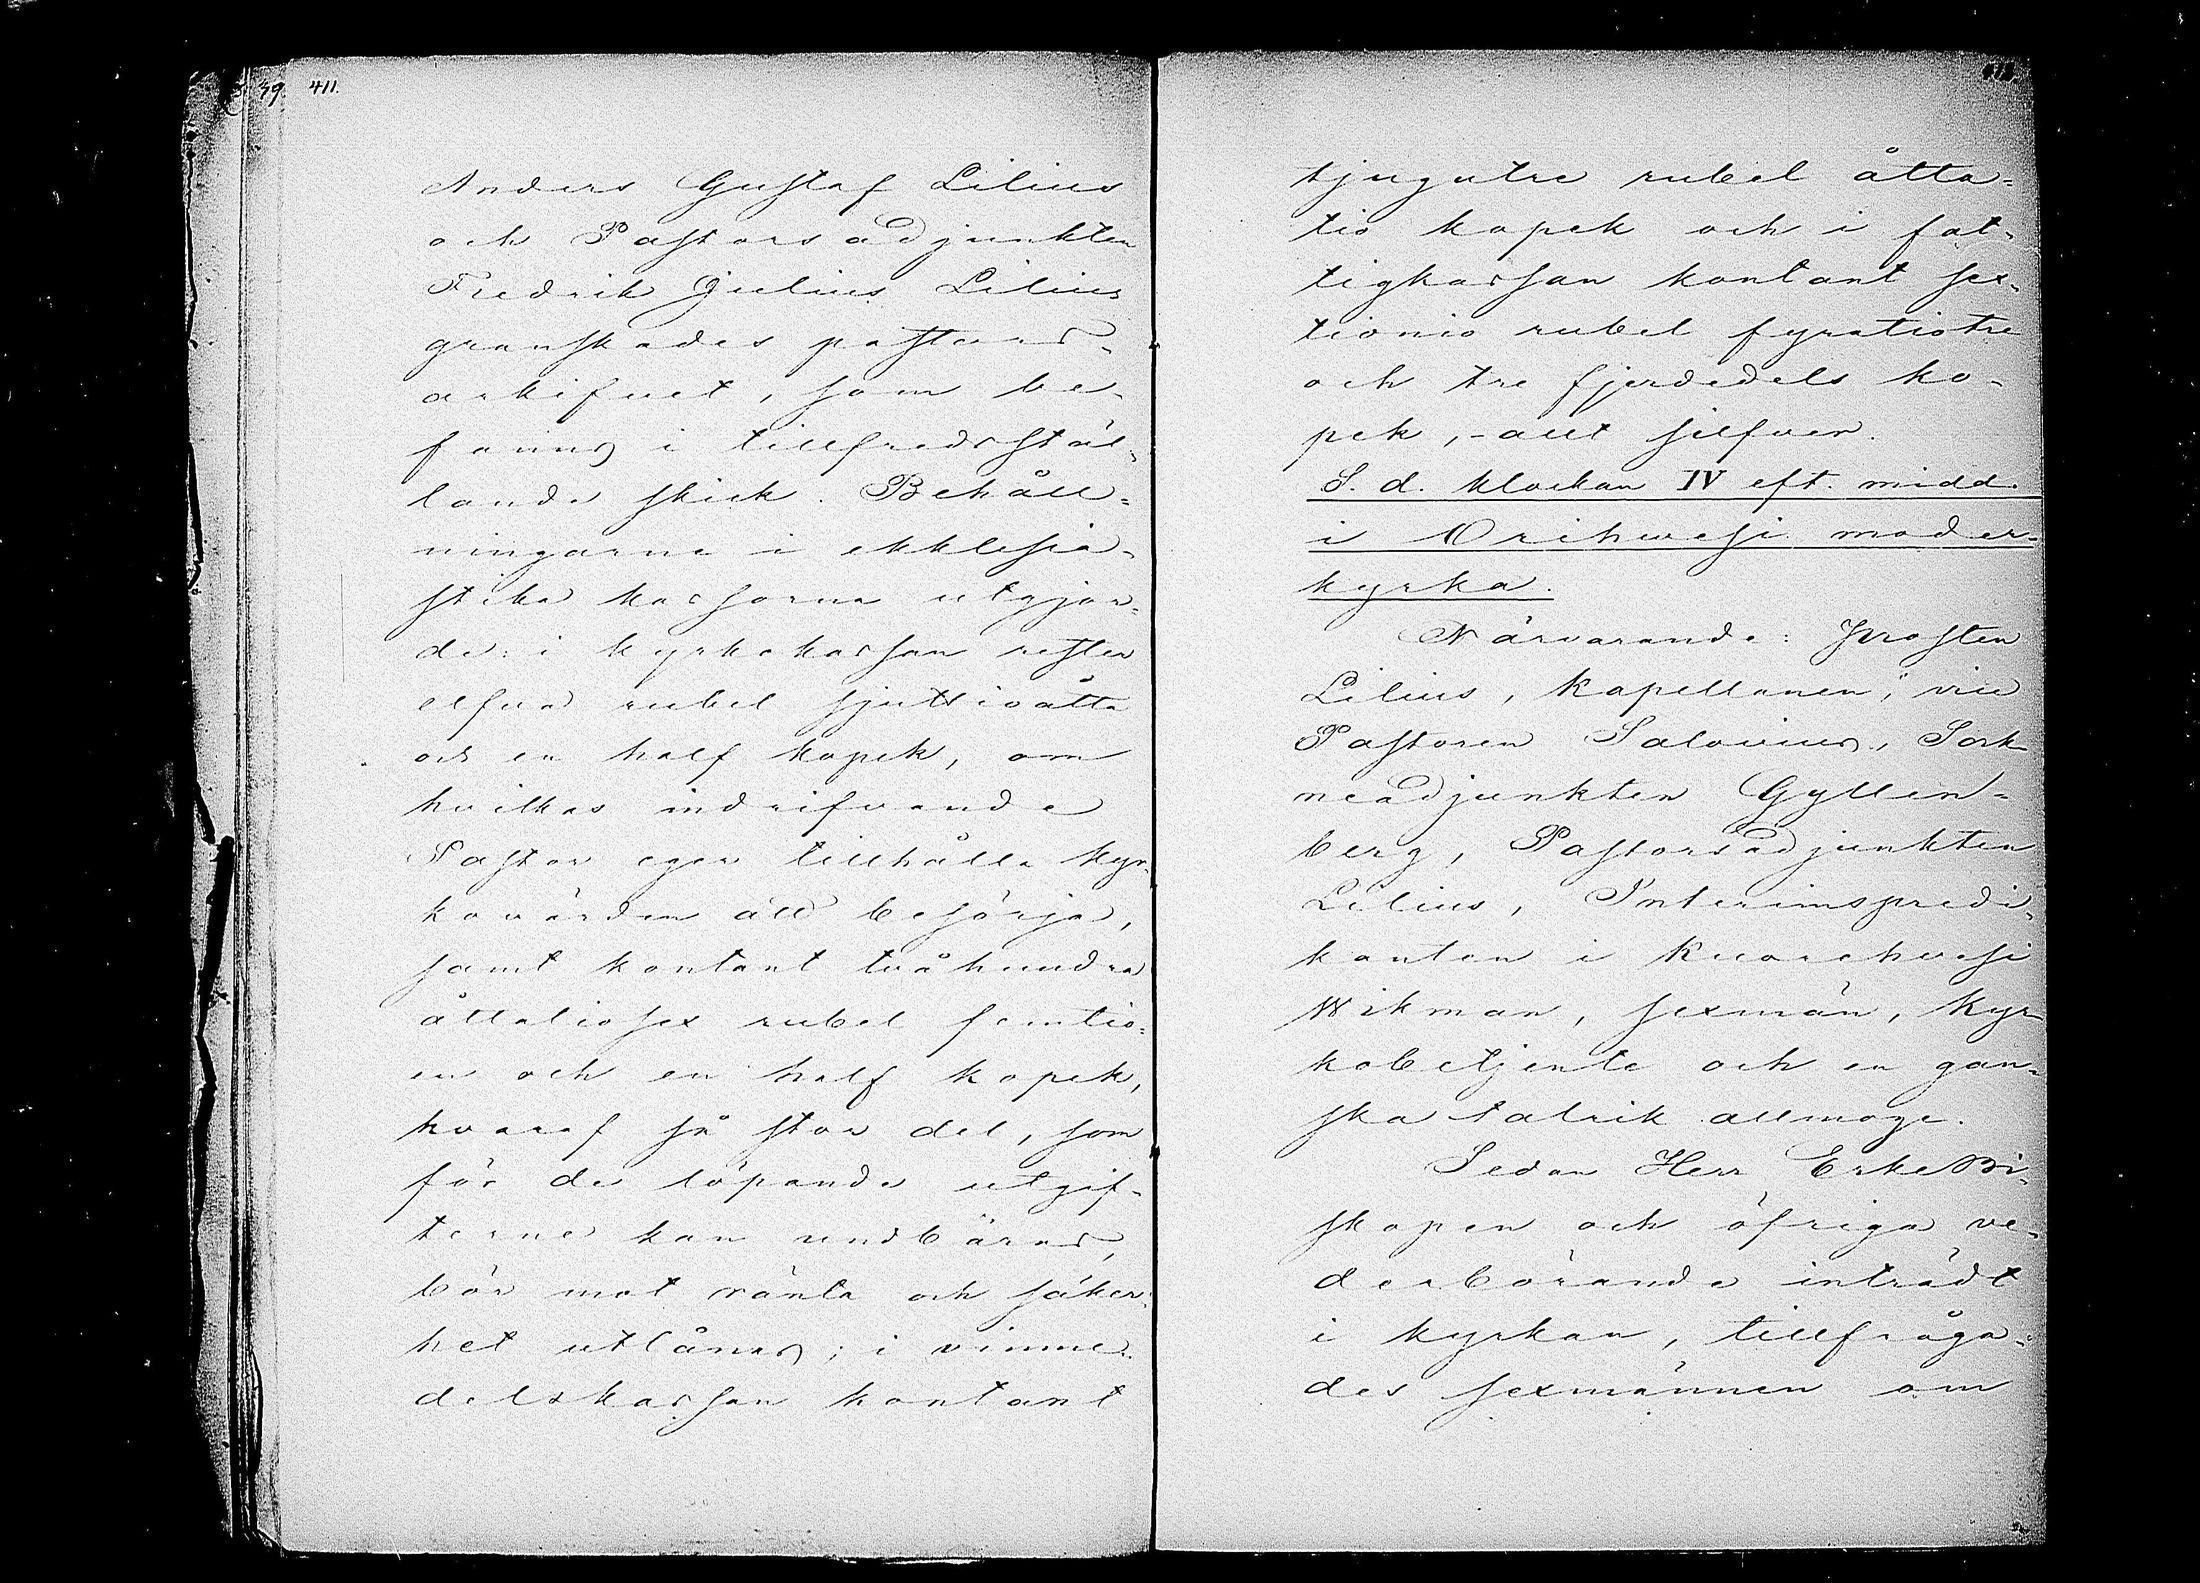 39. 411.
Anders Gustaf Lilius
och Pastorsadjunkten
Fredrik Julius Lilius
granskades pastors-
arkifvet, som be-
fanns i tillfredsstäl-
lande skick. Behåll-
ningarne i ekklesia-
stika kassorna utgjor-
de: i kyrkokassan rester
elfva rubel sjuttioåtta
och en half kopek, om
hvilkas indrifvande
Pastor eger tillhålla kyr-
kovärden att besörja,
samt kontant tvåhundra
åttatiosex rubel femtio-
en och en half kopek,
hvaraf så stor del, som
för de löpande utgif-
terne kan undbäras,
bör mot ränta och säker-
het utlånas; i vinme-
delskassan kontant
412.
tjugutre rubel åtta-
tio kopek och i fat-
tigkassan kontant sex-
tionio rubel fyratiotre
och tre fjerdedels ko-
pek, - allt silfver.
S. d. klockan IV eft. midd.
i Orihvesi moder-
kyrka.
Närvarande: Prosten
Lilius, Kapellanen, vice
Pastoren Salovius, Sock-
neadjunkten Gyllen-
berg, Pastorsadjunkten
Lilius, Interimspredi-
kanten i Kuorehvesi
Wikman, sexmän, kyr-
kobetjente och en gan-
ska talrik allmoge.
Sedan Herr ErkeBi-
skopen och öfriga ve-
derbörande inträdt
i kyrkan, tillfråga-
des sexmännen om